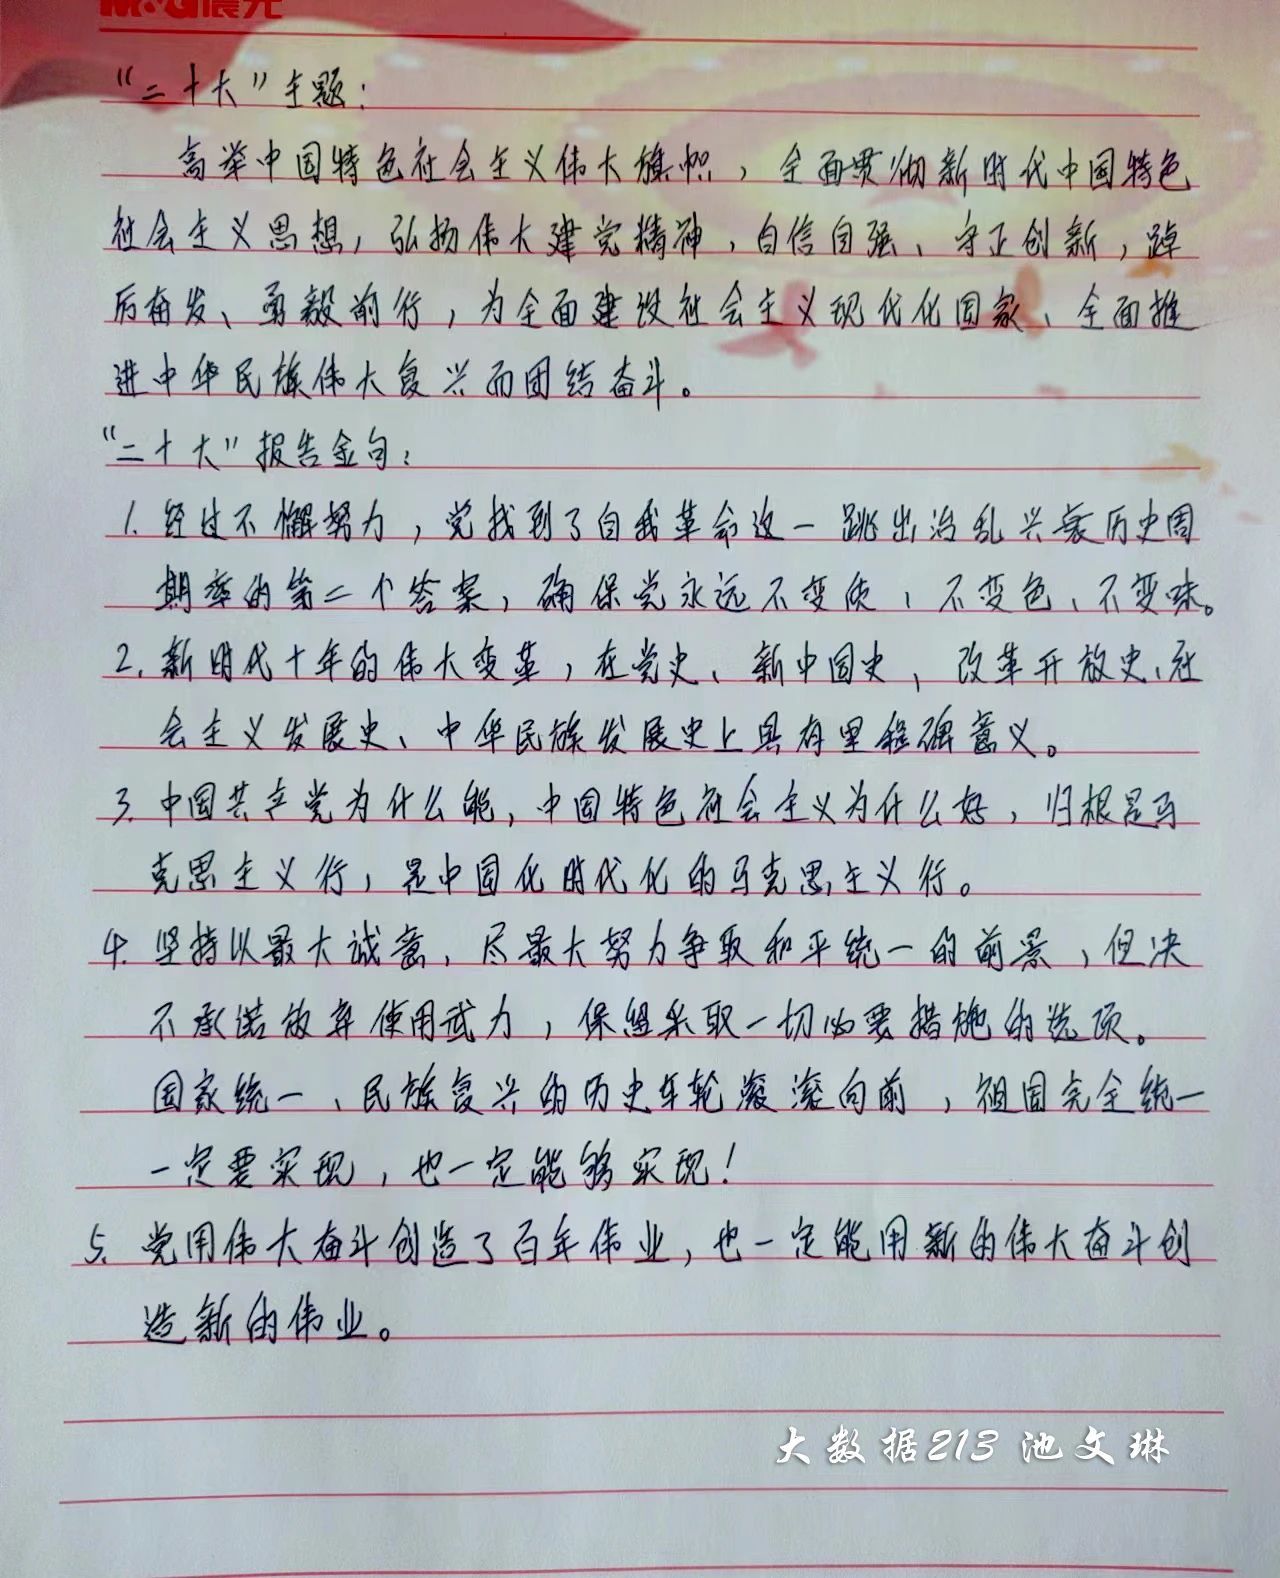 M&G晨光
“二十大”主题：
高举中国特色社会主义伟大旗帜，全面贯彻新时代中国特色
社会主义思想，弘扬伟大建党精神，自信自强、守正创新，踔
厉奋发、勇毅前行，为全面建设社会主义现代化国家、全面推
进中华民族伟大复兴而团结奋斗。
“二十大”报告金句：
1. 经过不懈努力，党找到了自我革命这一跳出治乱兴衰历史周
期率的第二个答案，确保党永远不变质、不变色、不变味。
2. 新时代十年的伟大变革，在党史、新中国史，改革开放史、社
会主义发展史、中华民族发展史上具有里程碑意义。
3. 中国共产党为什么能，中国特色社会主义为什么好，归根是马
克思主义行，是中国化时代化的马克思主义行。
4. 坚持以最大诚意，尽最大努力争取和平统一的前景，但决
不承诺放弃使用武力，保留采取一切必要措施的选项。
国家统一、民族复兴的历史车轮滚滚向前，祖国完全统一
一定要实现，也一定能够实现！
5. 党用伟大奋斗创造了百年伟业，也一定能用新的伟大奋斗创
造新的伟业。
大数据213 池文琳